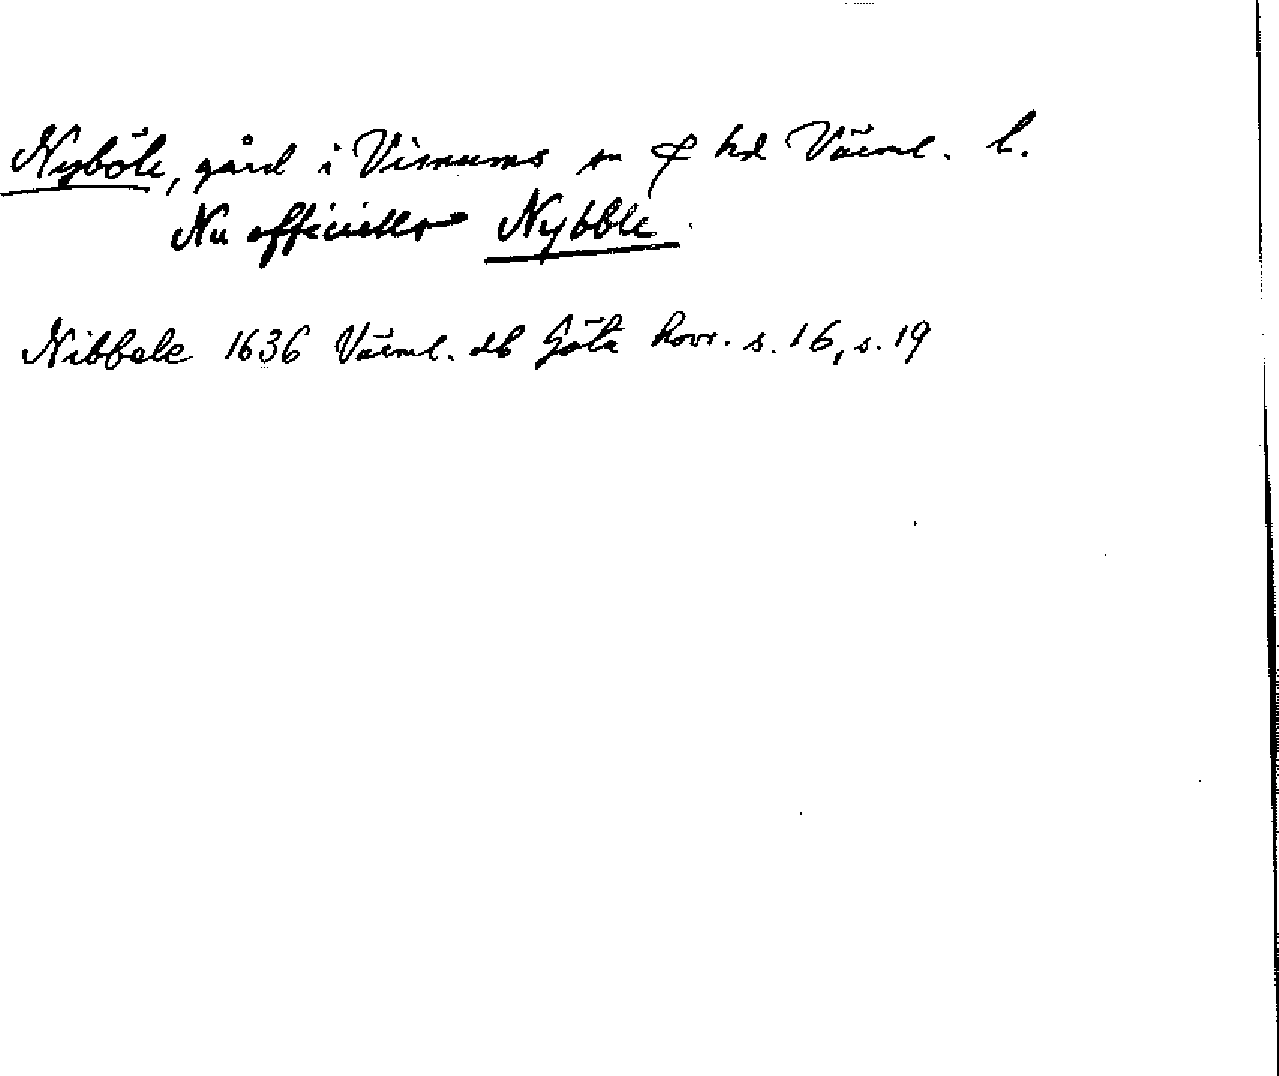 Nyböle, gård i Visnums sn & hd Värml. l.
Nu officiellt Nybble.
Nibbele 1636 Värml. db Göta hovr. s. 16, s. 19